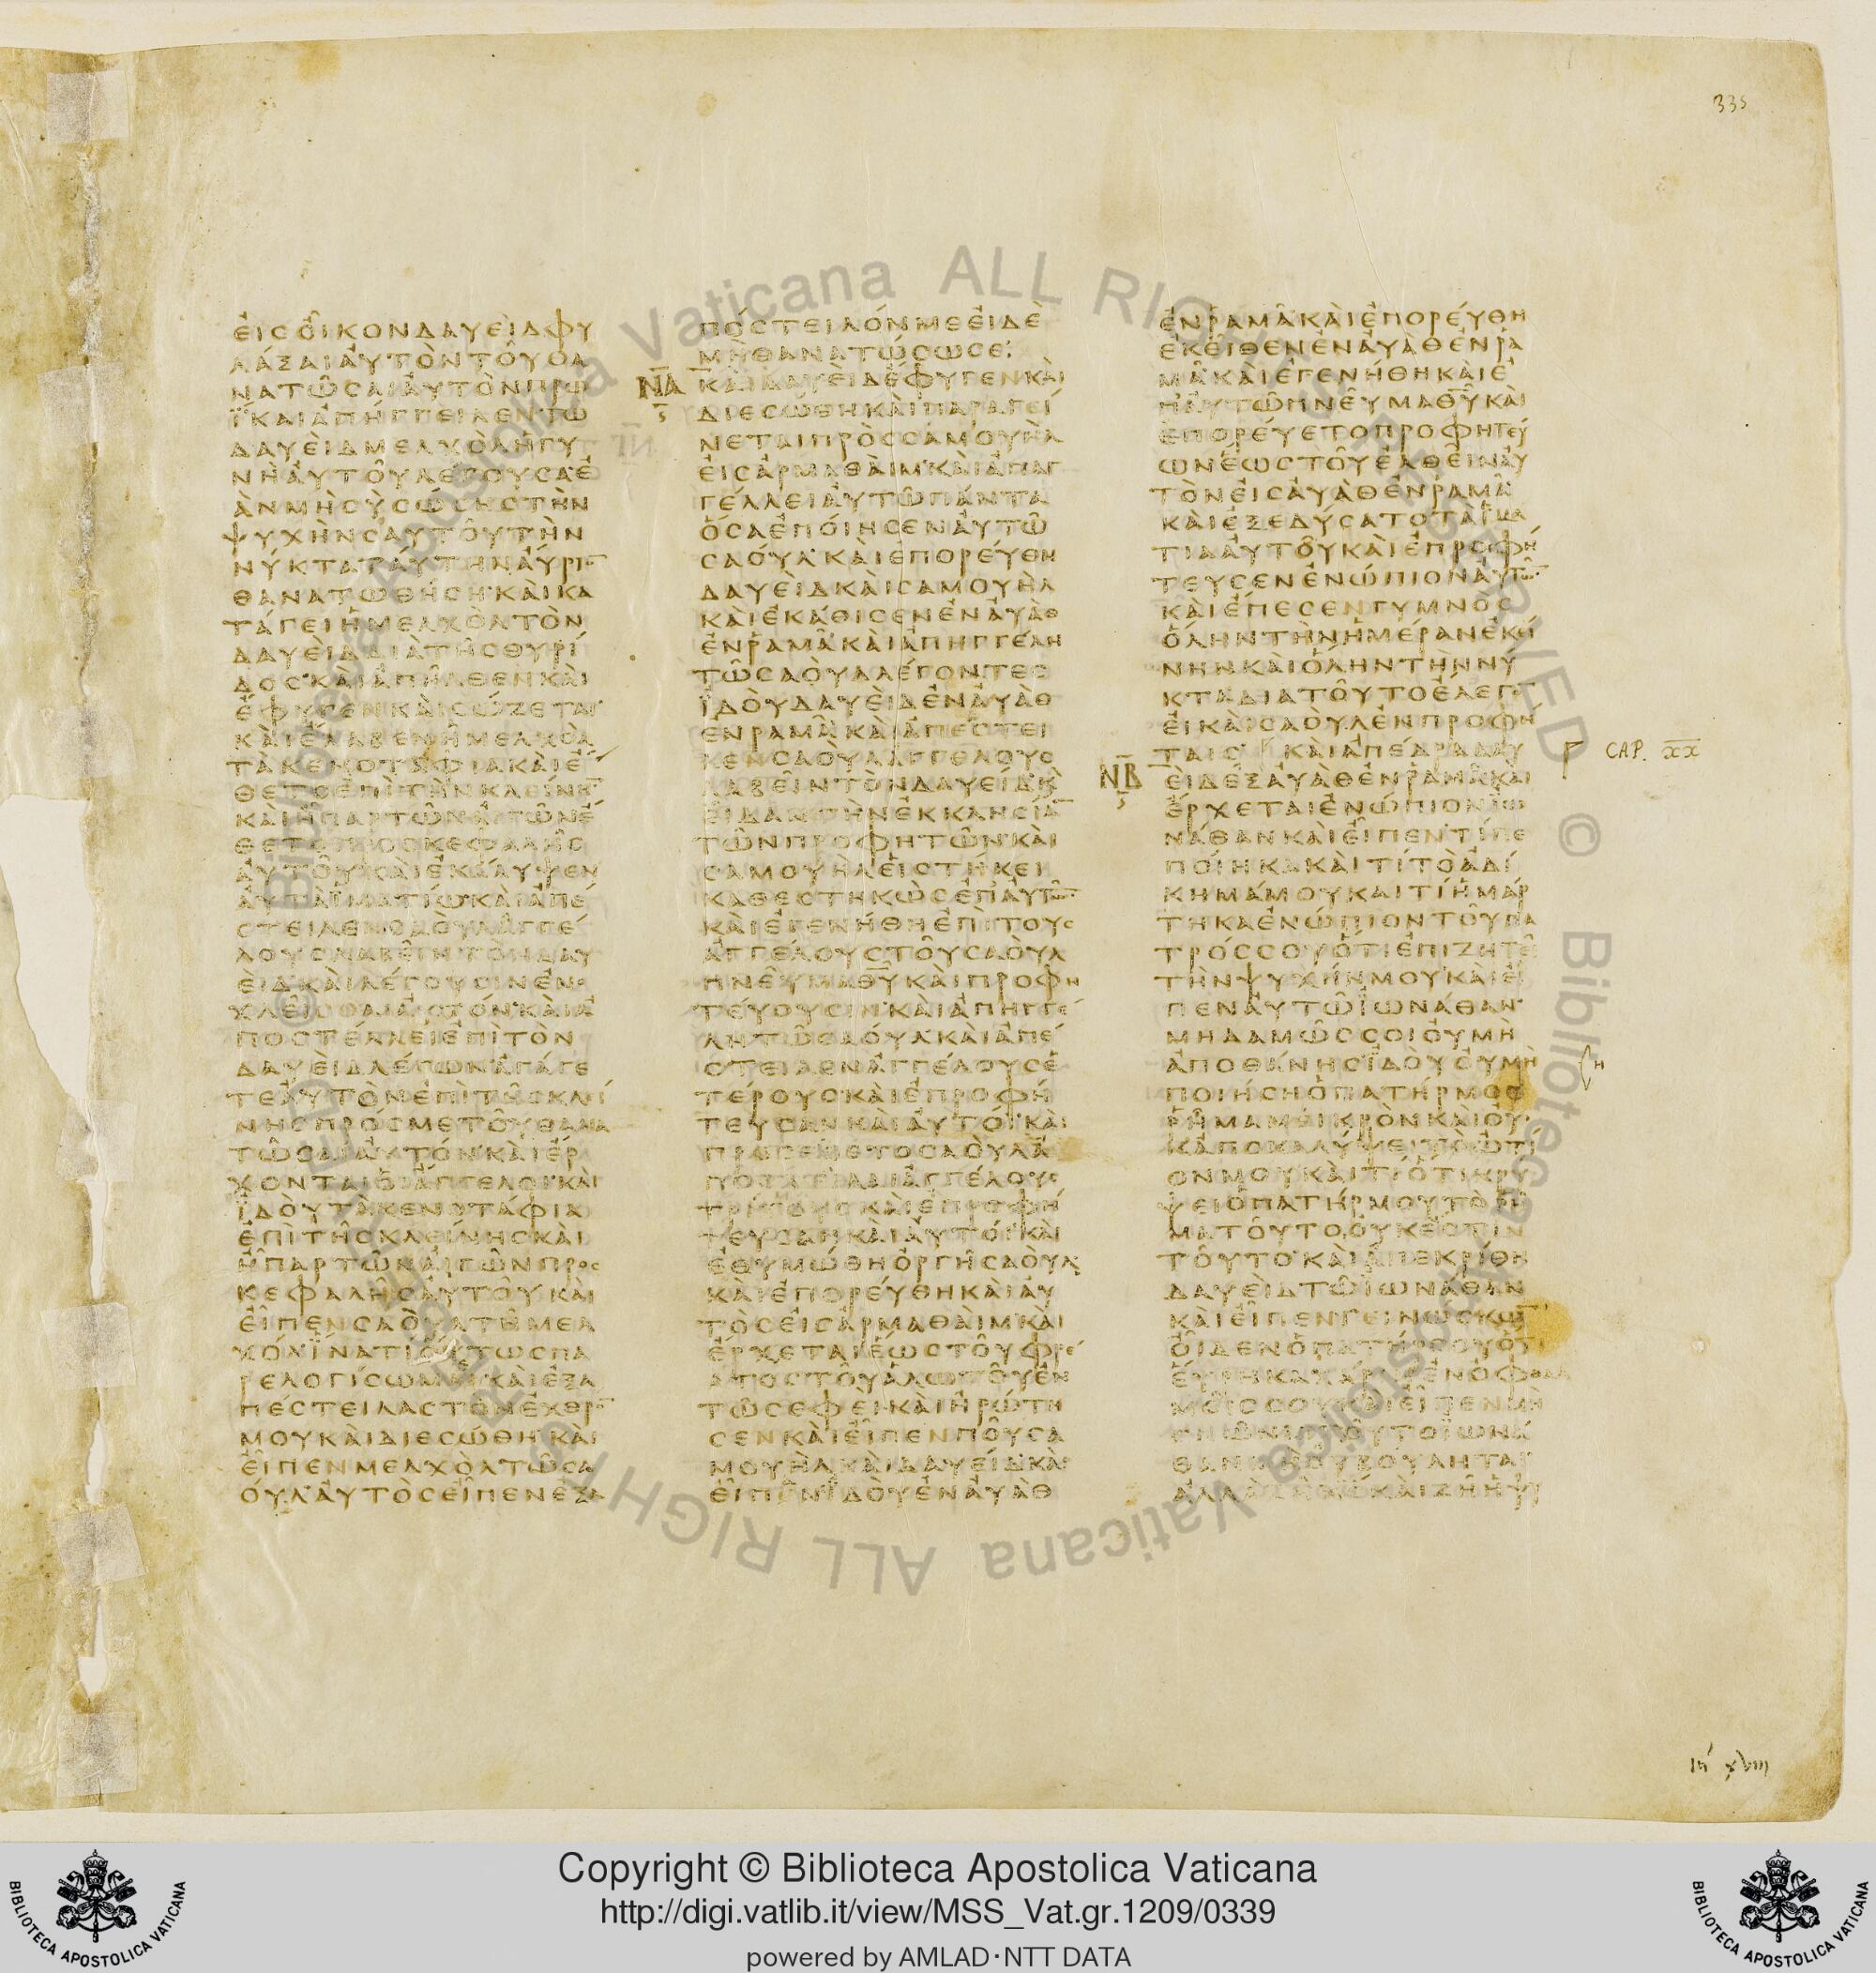 335
ΕΙϹΟΙΚΟΝΔΑΥΕΙΔΦΥ
ΛΑΞΑΙΑΥΤΟΝΤΟΥΘΑ
ΝΑΤΩϹΑΙΑΥΤΟΝΠΡΩ
ΪΚΑΙΑΠΗΓΓΕΙΛΕΝΤΩ
ΔΑΥΕΙΔΜΕΛΧΟΛΗΓΥ
ΝΗΑΥΤΟΥΛΕΓΟΥϹΑΕ
ΑΝΜΗϹΥϹΩϹΗϹΤΗΝ
ΨΥΧΗΝϹΑΥΤΟΥΤΗΝ
ΝΥΚΤΑΤΑΥΤΗΝΑΥΡΙΟ̅
ΘΑΝΑΤΩΘΗϹΗΚΑΙΚΑ
ΤΑΓΕΙΗΜΕΛΧΟΛΤΟΝ
ΔΑΥΕΙΔΔΙΑΤΗϹΘΥΡΙ
ΔΟϹΚΑΙΑΠΗΛΘΕΝΚΑΙ
ΕΦΥΓΕΝΚΑΙϹΩΖΕΤΑΙ
ΚΑΙΕΛΑΒΕΝΗΜΕΛΧΟΛ
ΤΑΚΕΝΟΤΑΦΙΑΚΑΙΕ
ΘΕΤΟΕΠΙΤΗΝΚΛΕΙΝΗ̅
ΚΑΙΗΠΑΡΤΩΝΑΙΓΩΝΕ
ΘΕΤΟΠΡΟϹΚΕΦΑΛΗϹ
ΑΥΤΟΥΚΑΙΕΚΑΛΥΨΕΝ
ΑΥΤΑΪΜΑΤΙΩΚΑΙΑΠΕ
ϹΤΕΙΛΕΝϹΑΟΥΛΑΓΓΕ
ΛΟΥϹΛΑΒΕΙΝΤΟΝΔΑΥ
ΕΙΔΚΑΙΛΕΓΟΥϹΙΝΕΝΟ
ΧΛΕΙϹΘΑΙΑΥΤΟΝΚΑΙΑ
ΠΟϹΤΕΛΛΕΙΕΠΙΤΟΝ
ΔΑΥΕΙΔΛΕΓΩΝΑΓΑΓΕ
ΤΕΑΥΤΟΝΕΠΙΤΗϹΚΛΙ
ΝΗϹΠΡΟϹΜΕΤΟΥΘΑΝΑ
ΤΩϹΑΙΑΥΤΟΝΚΑΙΕΡ
ΧΟΝΤΑΙΟΙΑΓΓΕΛΟΙΚΑΙ
ΪΔΟΥΤΑΚΕΝΟΤΑΦΙΑ
ΕΠΙΤΗϹΚΛΕΙΝΗϹΚΑΙ
ΗΠΑΡΤΩΝΑΙΓΩΝΠΡΟϹ
ΚΕΦΑΛΗϹΑΥΤΟΥΚΑΙ
ΕΙΠΕΝϹΑΟΥΛΤΗΜΕΛ
ΧΟΛΪΝΑΤΙΟΥΤΩϹΠΑ
ΡΕΛΟΓΙϹΩΜΕΚΑΙΕΞΑ
ΠΕϹΤΕΙΛΑϹΤΟΝΕΧΘΡΟ̅
ΜΟΥΚΑΙΔΙΕϹΩΘΗΚΑΙ
ΕΙΠΕΝΜΕΛΧΟΛΤΩϹΑ
ΟΥΛΑΥΤΟϹΕΙΠΕΝΕΞΑ
ΠΟϹΤΕΙΛΟΝΜΕΕΙΔΕ
ΜΗΘΑΝΑΤΩϹΩϹΕ
ΝΑ ΚΑΙΔΑΥΕΙΔΕΦΥΓΕΝΚΑΙ
ΔΙΕϹΩΘΗΚΑΙΠΑΡΑΓΕΙ
ΝΕΤΑΙΠΡΟϹϹΑΜΟΥΗΛ
ΕΙϹΑΡΜΑΘΑΙΜΚΑΙΑΠΑΓ
ΓΕΛΛΕΙΑΥΤΩΠΑΝΤΑ
ΟϹΑΕΠΟΙΗϹΕΝΑΥΤΩ
ϹΑΟΥΛΚΑΙΕΠΟΡΕΥΘΗ
ΔΑΥΕΙΔΚΑΙϹΑΜΟΥΗΛ
ΚΑΙΕΚΑΘΙϹΕΝΕΝΑΥΑΘ
ΕΝΡΑΜΑΚΑΙΑΠΗΓΓΕΛΗ
ΤΩϹΑΟΥΛΛΕΓΟΝΤΕϹ
ΪΔΟΥΔΑΥΕΙΔΕΝΑΥΑΘ
ΕΝΡΑΜΑΚΑΙΑΠΕϹΤΕΙ
ΛΕΝϹΑΟΥΛΑΓΓΕΛΟΥϹ
ΛΑΒΕΙΝΤΟΝΔΑΥΕΙΔΚΑΙ
ΕΙΔΑΝΤΗΝΕΚΚΛΗϹΙΑ̅
ΤΩΝΠΡΟΦΗΤΩΝΚΑΙ
ϹΑΜΟΥΗΛΕΙϹΤΗΚΕΙ
ΚΑΘΕϹΤΗΚΩϹΕΠΑΥΤΩ̅
ΚΑΙΕΓΕΝΗΘΗΕΠΙΤΟΥϹ
ΑΓΓΕΛΟΥϹΤΟΥϹΑΟΥΛ
ΠΝΕΥΜΑΘ̅Υ̅ΚΑΙΠΡΟΦΗ
ΤΕΥΟΥϹΙΝΚΑΙΑΠΗΓΓΕ
ΛΗΤΩϹΑΟΥΛΚΑΙΑΠΕ
ϹΤΕΙΛΕΝΑΓΓΕΛΟΥϹΕ
ΤΕΡΟΥϹΚΑΙΕΠΡΟΦΗ
ΤΕΥϹΑΝΚΑΙΑΥΤΟΙΚΑΙ
ΠΡΟϹΕΘΕΤΟϹΑΟΥΛΑ
ΠΟϹΤΕΙΛΑΙΑΓΓΕΛΟΥϹ
ΤΡΙΤΟΥϹΚΑΙΕΠΡΟΦΗ
ΤΕΥϹΑΝΚΑΙΑΥΤΟΙΚΑΙ
ΕΘΥΜΩΘΗΟΡΓΗϹΑΟΥΛ
ΚΑΙΕΠΟΡΕΥΘΗΚΑΙΑΥ
ΤΟϹΕΙϹΑΡΜΑΘΑΙΜΚΑΙ
ΕΡΧΕΤΑΙΕΩϹΤΟΥΦΡΕ
ΑΤΟϹΤΟΥΑΛΩΤΟΥΕΝ
ΤΩϹΕΦΕΙΚΑΙΗΡΩΤΗ
ϹΕΝΚΑΙΕΙΠΕΝΠΟΥϹΑ
ΜΟΥΗΛΚΑΙΔΑΥΕΙΔΚΑΙ
ΕΙΠΕΝΪΔΟΥΕΝΑΥΑΘ
ΕΝΡΑΜΑΚΑΙΕΠΟΡΕΥΘΗ
ΕΚΕΙΘΕΝΕΝΑΥΑΘΕΝΡΑ
ΜΑΚΑΙΕΓΕΝΗΘΗΚΑΙΕ
ΠΑΥΤΩΠΝΕΥΜΑΘ̅Υ̅ΚΑΙ
ΕΠΟΡΕΥΕΤΟΠΡΟΦΗΤΕΥ
ΩΝΕΩϹΤΟΥΕΛΘΕΙΝΑΥ
ΤΟΝΕΙϹΑΥΑΘΕΝΡΑΜΑ
ΚΑΙΕΞΕΔΥϹΑΤΟΤΑΪΜΑ
ΤΙΑΑΥΤΟΥΚΑΙΕΠΡΟΦΗ
ΤΕΥϹΕΝΕΝΩΠΙΟΝΑΥΤΩ̅
ΚΑΙΕΠΕϹΕΝΓΥΜΝΟϹ
ΟΛΗΝΤΗΝΗΜΕΡΑΝΕΚΕΙ
ΝΗΝΚΑΙΟΛΗΝΤΗΝΝΥ
ΚΤΑΔΙΑΤΟΥΤΟΕΛΕΓΟ̅
ΕΙΚΑΙϹΑΟΥΛΕΝΠΡΟΦΗ
ΤΑΙϹ ΚΑΙΑΠΕΔΡΑΔΑΥ CAP. XX
ΝΒ ΕΙΔΕΞΑΥΑΘΕΝΡΑΜΑΚΑΙ
ΕΡΧΕΤΑΙΕΝΩΠΙΟΝΪΩ
ΝΑΘΑΝΚΑΙΕΙΠΕΝΤΙΠΕ
ΠΟΙΗΚΑΚΑΙΤΙΤΟΑΔΙ
ΚΗΜΑΜΟΥΚΑΙΤΙΗΜΑΡ
ΤΗΚΑΕΝΩΠΙΟΝΤΟΥΠΑ
ΤΡΟϹϹΟΥΟΤΙΕΠΙΖΗΤΕΙ
ΤΗΝΨΥΧΗΝΜΟΥΚΑΙΕΙ
ΠΕΝΑΥΤΩΪΩΝΑΘΑΝ
ΜΗΔΑΜΩϹϹΟΙΟΥΜΗ
ΑΠΟΘΑΝΗϹΪΔΟΥΟΥΜΗ
ΠΟΙΗϹΗΟΠΑΤΗΡΜΟΥ
ΡΗΜΑΜΕΙΚΡΟΝΚΑΙΟΥ
ΚΑΠΟΚΑΛΥΨΕΙΤΟΩΤΙ
ΟΝΜΟΥΚΑΙΤΙΟΤΙΚΡΥ
ΨΕΙΟΠΑΤΗΡΜΟΥΤΟΡΗ
ΜΑΤΟΥΤΟΟΥΚΕϹΤΙΝ
ΤΟΥΤΟΚΑΙΑΠΕΚΡΙΘΗ
ΔΑΥΕΙΔΤΩΪΩΝΑΘΑΝ
ΚΑΙΕΙΠΕΝΓΕΙΝΩϹΚΩ̅
ΟΙΔΕΝΟΠΑΤΗΡϹΟΥΟΤΙ
ΕΥΡΗΚΑΧΑΡΙΝΕΝΟΦΘΑΛ
ΜΟΙϹϹΟΥΚΑΙΕΙΠΕΝΜΗ
ΓΝΩΤΩΤΟΥΤΟΪΩΝΑ
ΘΑΝΜΗΟΥΒΟΥΛΗΤΑΙ
ΑΛΛΑΖΗΚ̅Ϲ̅ΚΑΙΖΗΗΨΥ